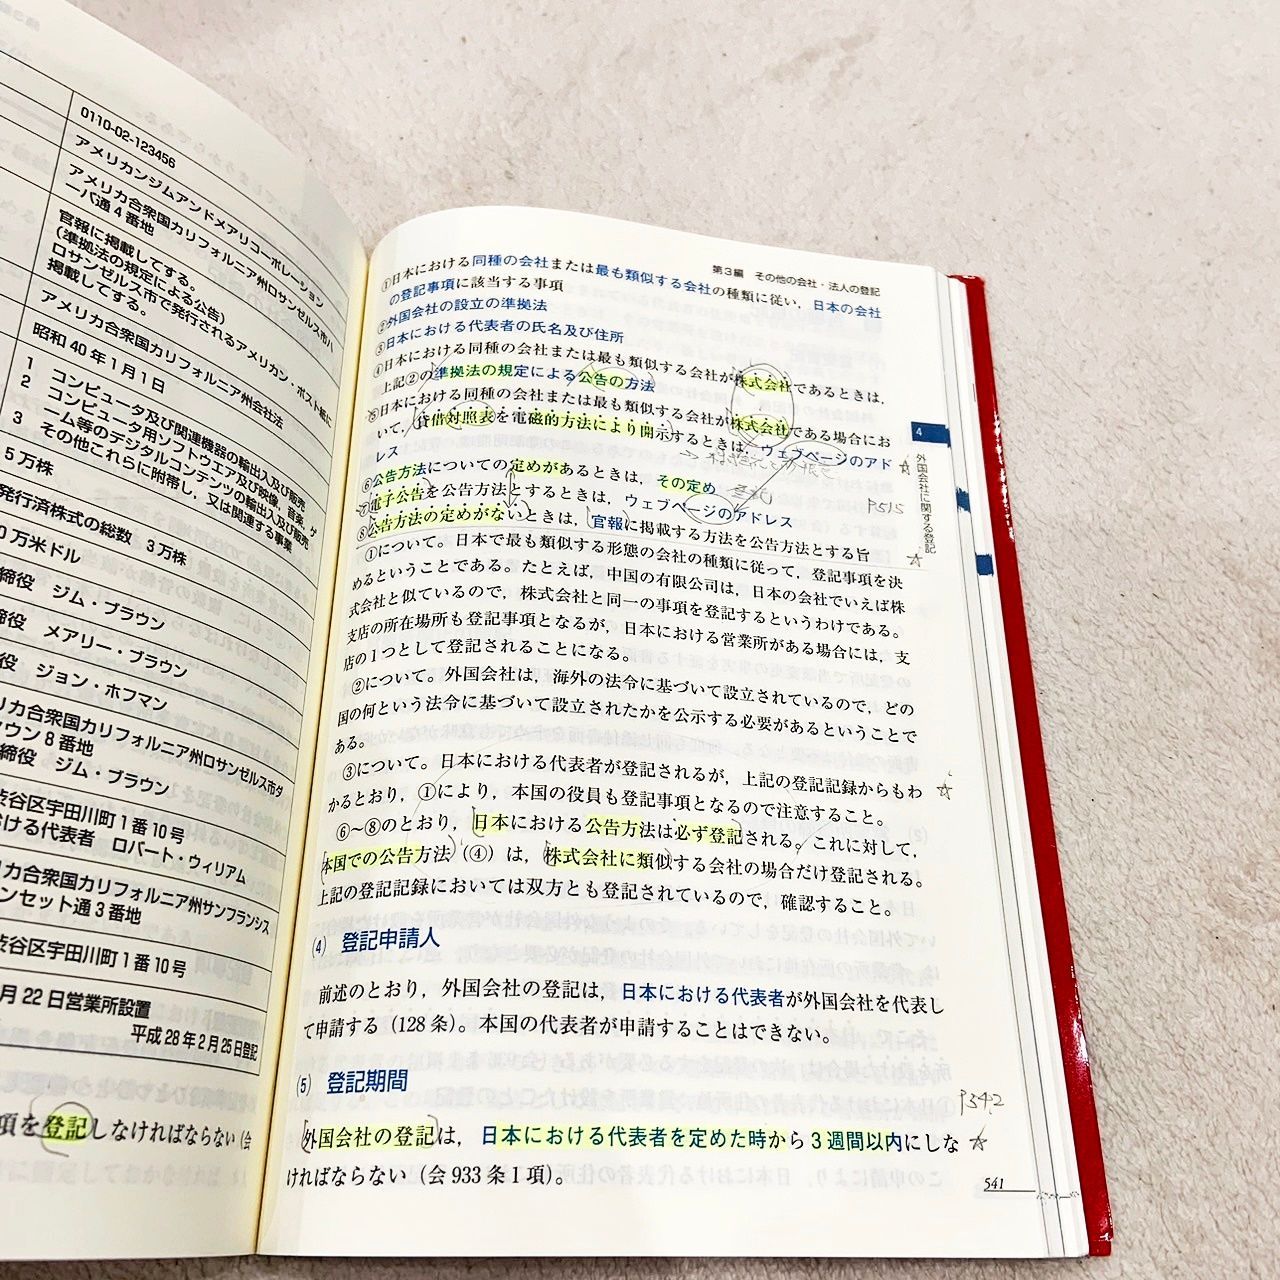 0110-02-123456
アメリカンジムアンドメアリコーポレーション
アメリカ合衆国カリフォルニア州ロサンゼルス市ハ
ーバ通4番地
官報に掲載してする。
(準拠法の規定による公告)
ロサンゼルス市で発行されるアメリカン・ポスト紙に
掲載してする。
アメリカ合衆国カリフォルニア州会社法
昭和40年1月1日
1 コンピュータ及び関連機器の輸出入及び販売
2 コンピュータ用ソフトウエア及び映像、音楽、ゲ
ーム等のデジタルコンテンツの輸出入及び販売
3 その他これらに附帯し、又は関連する事業
5万株
発行済株式の総数 3万株
0万米ドル
締役 ジム・ブラウン
締役 メアリー・ブラウン
役 ジョン・ホフマン
リカ合衆国カリフォルニア州ロサンゼルス市ダ
タウン8番地
締役 ジム・ブラウン
渋谷区宇田川町1番10号
おける代表者 ロバート・ウィリアム
リカ合衆国カリフォルニア州サンフランシス
ンセット通3番地
渋谷区宇田川町1番10号
月22日営業所設置
平成28年2月25日登記
項を登記しなければならない(会
第3編 その他の会社・法人の登記
①日本における同種の会社または最も類似する会社の種類に従い，日本の会社
の登記事項に該当する事項
②外国会社の設立の準拠法
③日本における代表者の氏名及び住所
④日本における同種の会社または最も類似する会社が株式会社であるときは，
上記②の準拠法の規定による公告の方法
⑤日本における同種の会社または最も類似する会社が株式会社である場合にお
いて，貸借対照表を電磁的方法により開示するときは，ウェブページのアド
レス
⑥公告方法についての定めがあるときは，その定め
⑦電子公告を公告方法とするときは，ウェブページのアドレス
P515
⑧公告方法の定めがないときは，官報に掲載する方法を公告方法とする旨
4
外国会社に関する登記
①について。日本で最も類似する形態の会社の種類に従って，登記事項を決
めるということである。たとえば，中国の有限公司は，日本の会社でいえば株
式会社と似ているので，株式会社と同一の事項を登記するというわけである。
支店の所在場所も登記事項となるが，日本における営業所がある場合には，支
店の1つとして登記されることになる。
②について。外国会社は，海外の法令に基づいて設立されているので，どの
国の何という法令に基づいて設立されたかを公示する必要があるということで
ある。
③について。日本における代表者が登記されるが，上記の登記記録からもわ
かるとおり，①により，本国の役員も登記事項となるので注意すること。
⑥～⑧のとおり，日本における公告方法は必ず登記される。これに対して，
本国での公告方法（④）は，株式会社に類似する会社の場合だけ登記される。
上記の登記記録においては双方とも登記されているので，確認すること。
(4) 登記申請人
前述のとおり，外国会社の登記は，日本における代表者が外国会社を代表し
て申請する（128条）。本国の代表者が申請することはできない。
(5) 登記期間
P342
外国会社の登記は，日本における代表者を定めた時から3週間以内にしな
ければならない（会933条1項）。
541